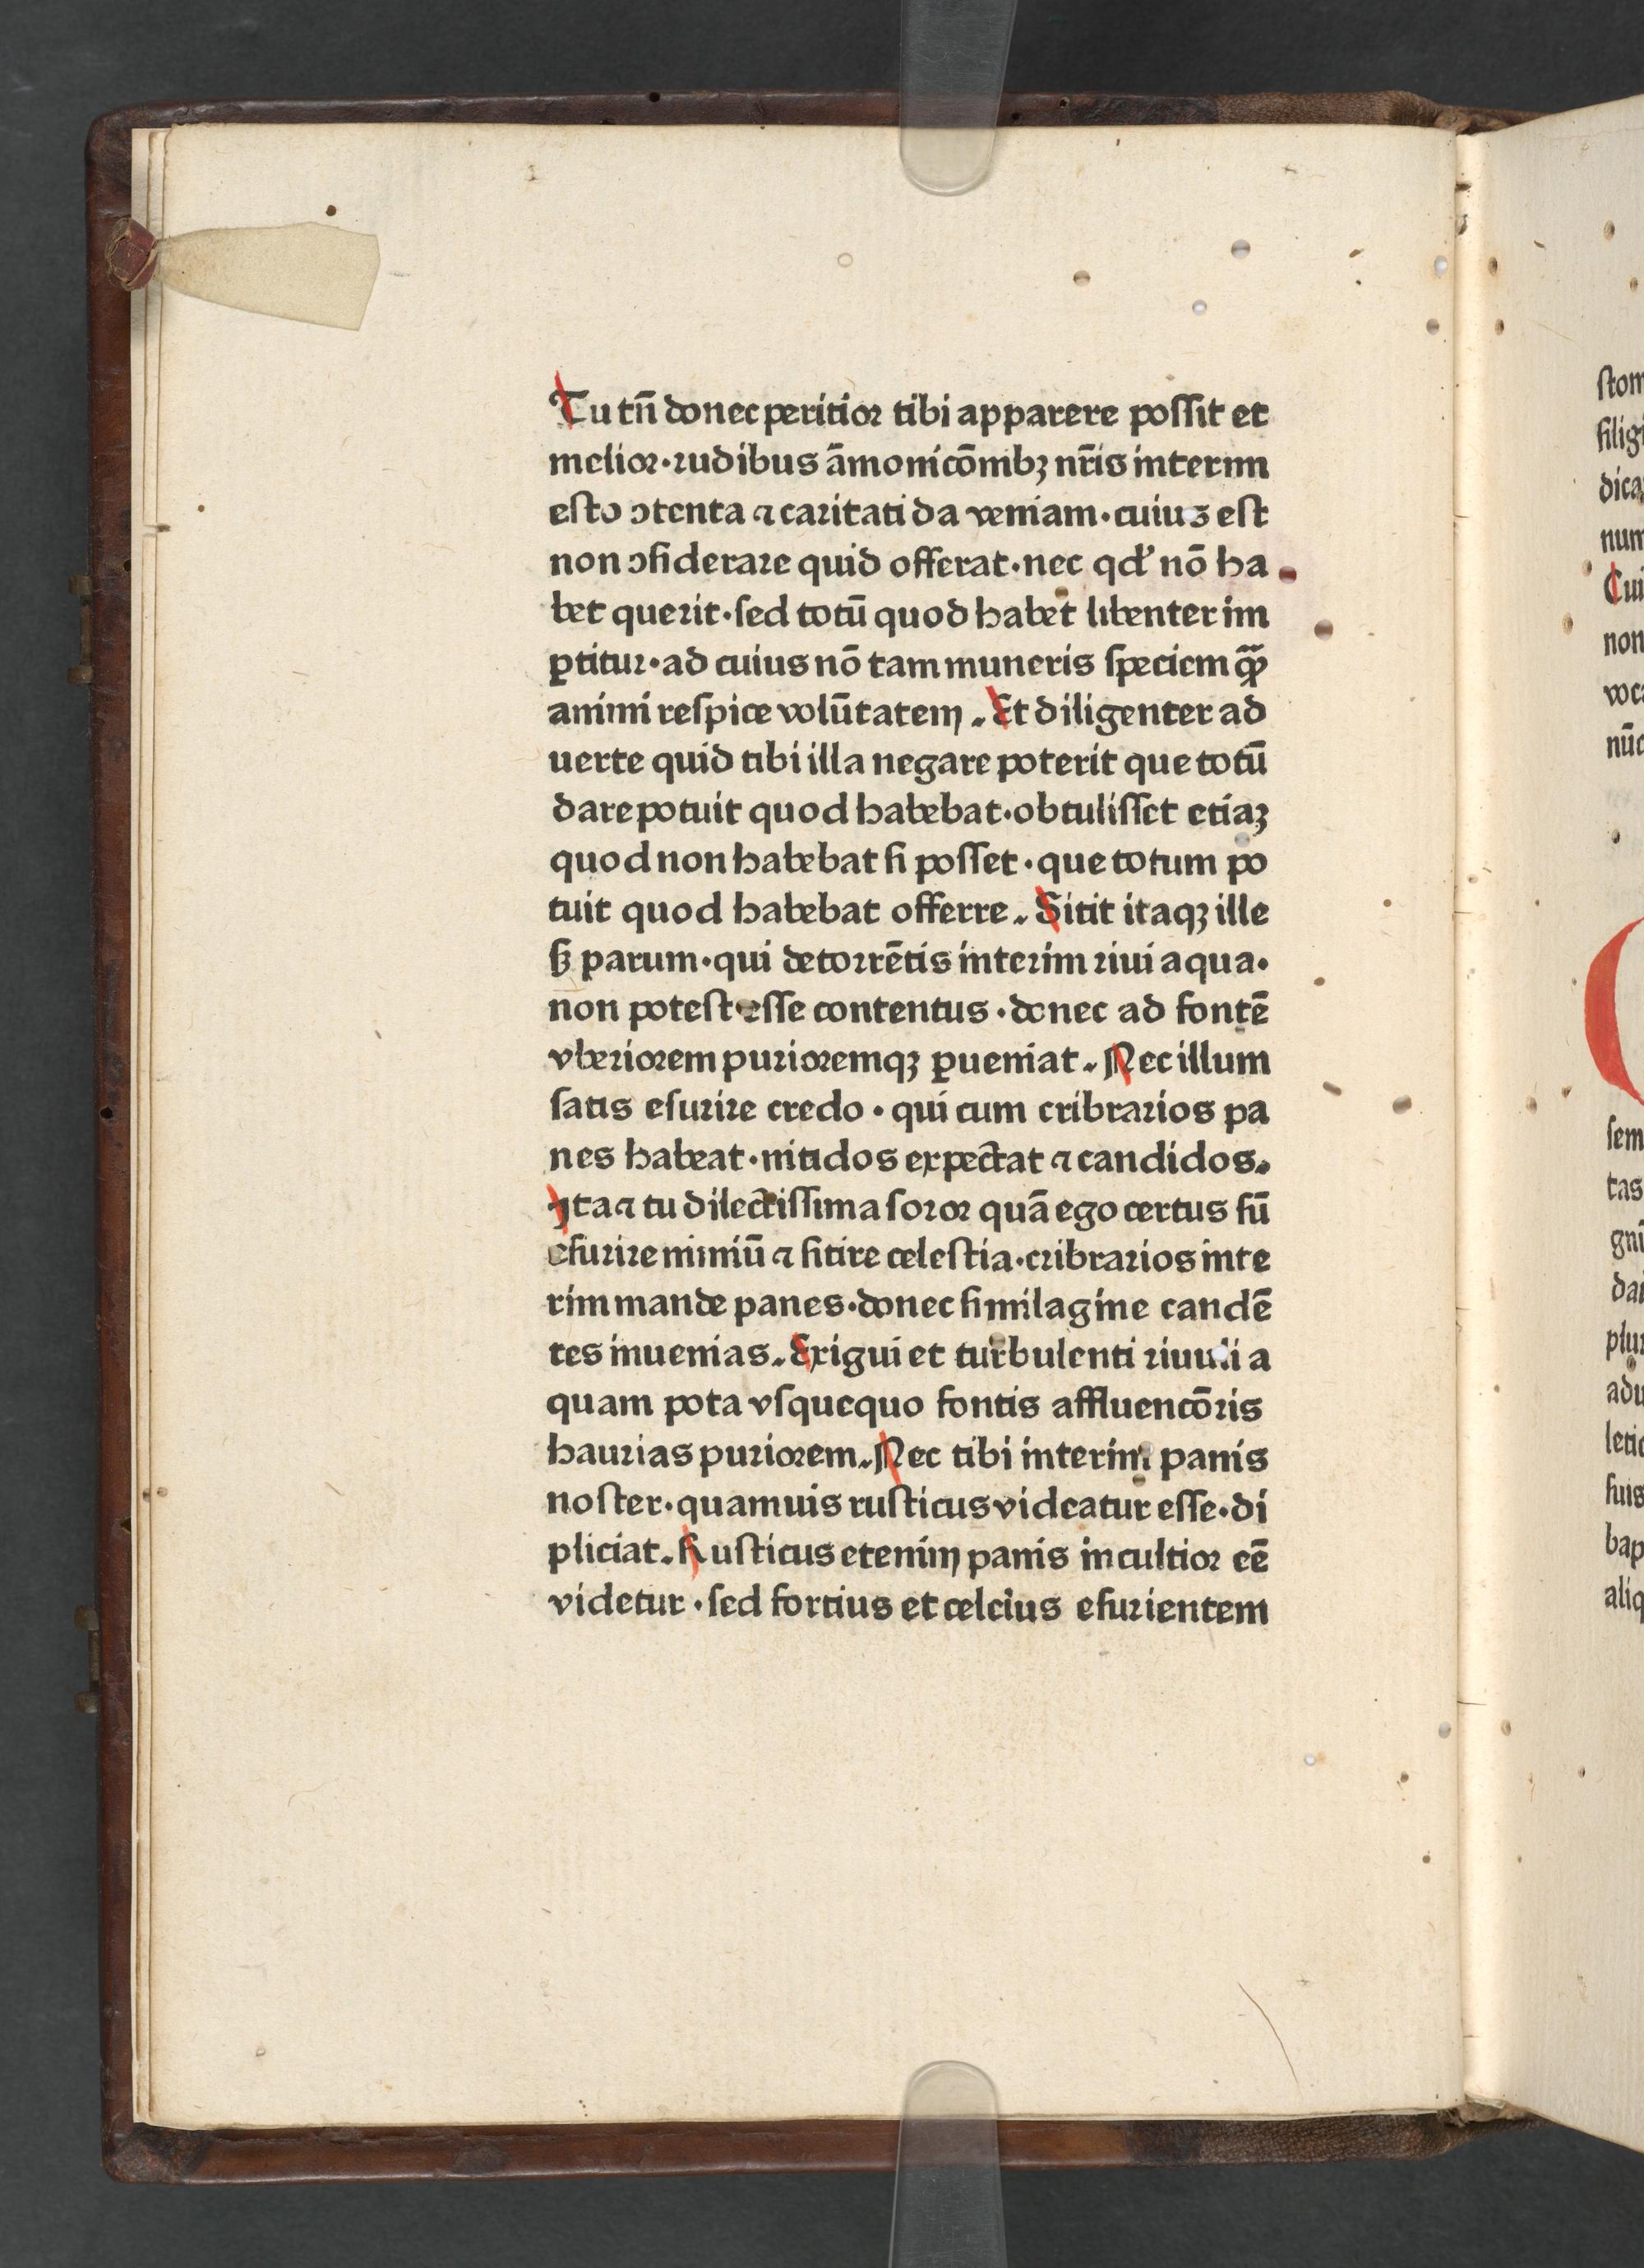 Tu tn̄ donec peritior tibi apparere possit et
melior·rudibus āmonicōmbꝫ nr̄is interim
esto ↄtenta ⁊ caritati da veniam·cuius est
non ↄsiderare quid offerat·nec qd' nō ha
bet querit·sed totū quod habet libenter im
ꝑtitur·ad cuius nō tam muneris speciem qͣꝫ
animi respice volūtatem. Et diligenter ad
uerte quid tibi illa negare poterit que totū
dare potuit quod habebat·obtulisset etiaꝫ
quod non habebat si posset·que totum po
tuit quod habebat offerre. Sitit itaqꝫ ille
sꝫ parum·qui de torrētis interim riui aqua·
non potest esse contentus·donec ad fontē
vberiorem purioremqꝫ ꝑueniat. Nec illum
satis esurire credo·qui cum cribrarios pa
nes habeat·nitidos expectat ⁊ candidos.
Ita ⁊ tu dilectissima soror quā ego certus sū
esurire nimiū ⁊ sitire celestia·cribrarios inte
rim mande panes·donec similagine candē
tes inuenias. Exigui et turbulenti riuuli a
quam pota vsquequo fontis affluencōris
haurias puriorem. Nec tibi interim panis
noster·quamuis rusticus videatur esse·di
pliciat. Rusticus etenim panis incultior eē
videtur·sed fortius et celcius esurientem
stom
filigi
dica
num
Cui
non
voc
nūc
sem
tas
gni
dai
plur
adu
letic
suis
bap
aliq